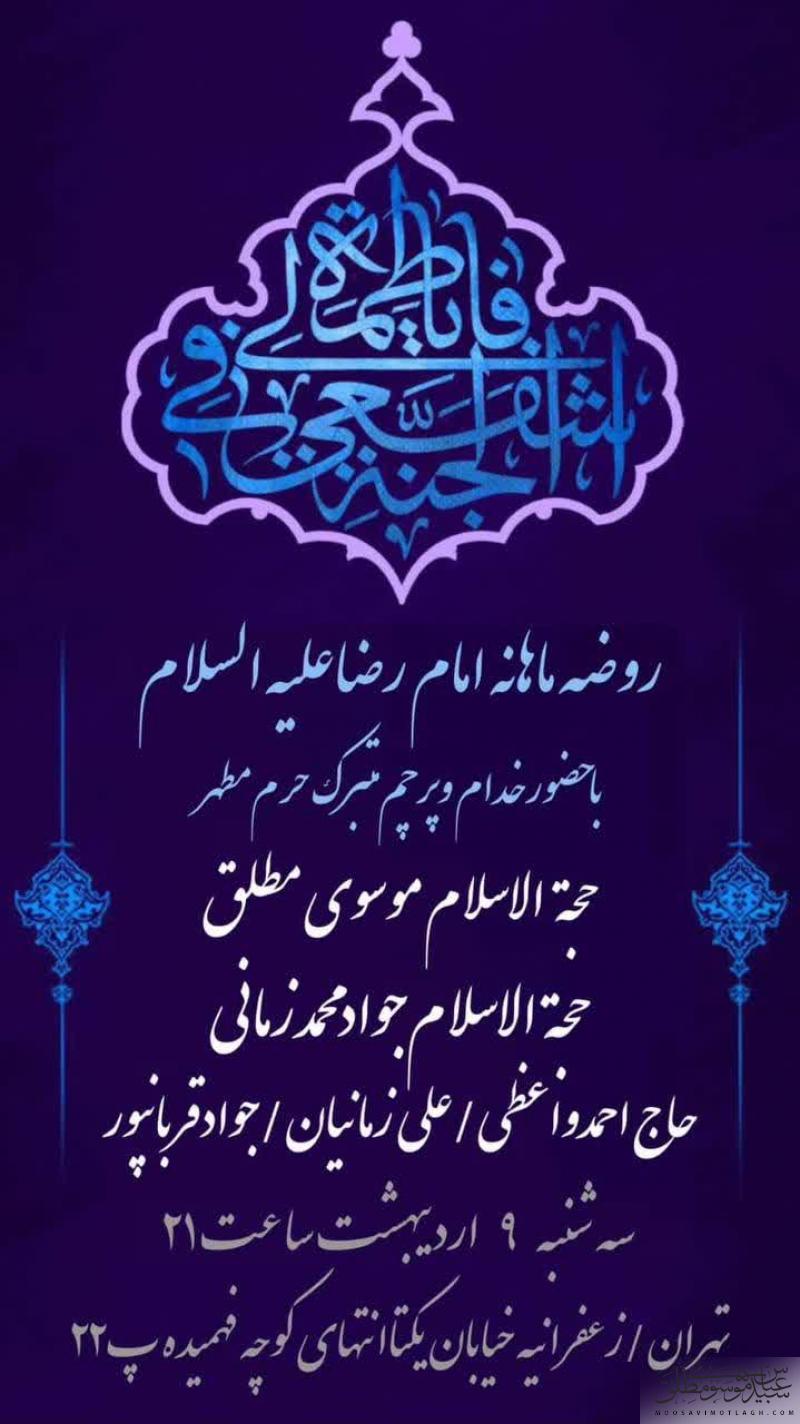 یا فاطمة اشفعی لی فی الجنة
روضه ماهانه امام رضا علیه السلام
باحضور خدام و پرچم متبرک حرم مطهر
حجة الاسلام موسوی مطلق
حجة الاسلام جواد محمدزمانی
حاج احمد واعظی / علی زمانیان / جواد قربانپور
سه شنبه ۹ اردیبهشت ساعت ۲۱
تهران / زعفرانیه خیابان یکتا انتهای کوچه فهمیده پ ۲۲
سیدعباس موسوی مطلق
MOOSAVIMOTLAGH.COM